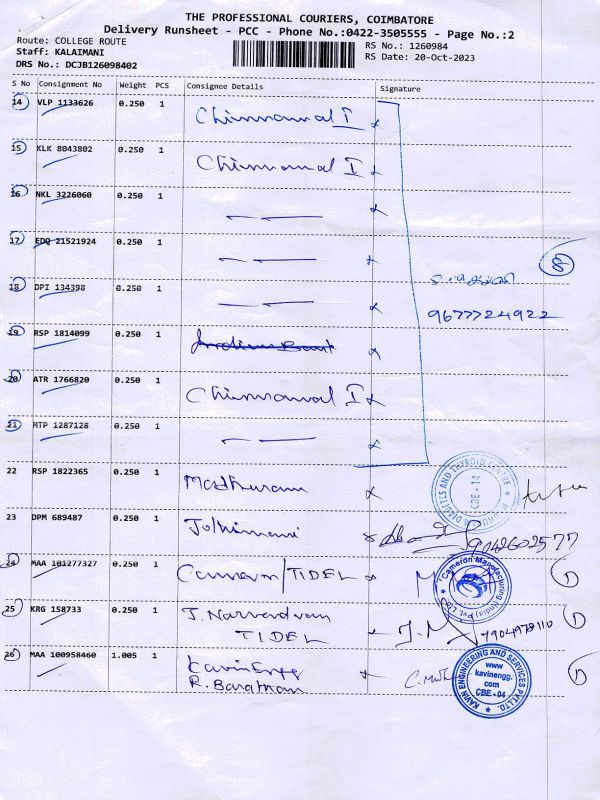 THE PROFESSIONAL COURIERS, COIMBATORE
Delivery Runsheet - PCC - Phone No.:0422-3505555 - Page No.:2
Route: COLLEGE ROUTE
RS No.: 1260984
Staff: KALAIMANI
RS Date: 20-Oct-2023
DRS No.: DCJB126098402
S No Consignment No Weight PCS Consignee Details Signature
14 VLP 1133626 0.250 1 Chinnamal I
15 KLK 8043802 0.250 1 Chinnamal I
16 NKL 3226060 0.250 1
17 EDQ 21521924 0.250 1
8
18 DPI 134398 0.250 1
9677724922
19 RSP 1814099 0.250 1
20 ATR 1766820 0.250 1 Chinnamal I
21 MTP 1287128 0.250 1
22 RSP 1822365 0.250 1 Madhuram
DIABETES AND THYROID CENTRE
CBE-14
23 DPM 689487 0.250 1 Jothimani
9042602577
24 MAA 101277327 0.250 1 Cameron/TIDEL
Cameron Manufacturing (India) Pvt. Ltd.
1
25 KRG 158733 0.250 1 J.
TIDEL
7904978110
1
26 MAA 100958460 1.005 1 Kavin Engg
R. Barathan
KAVIN ENGINEERING AND SERVICES PVT LTD.
www.
kavinengg.
com
CBE-04
1